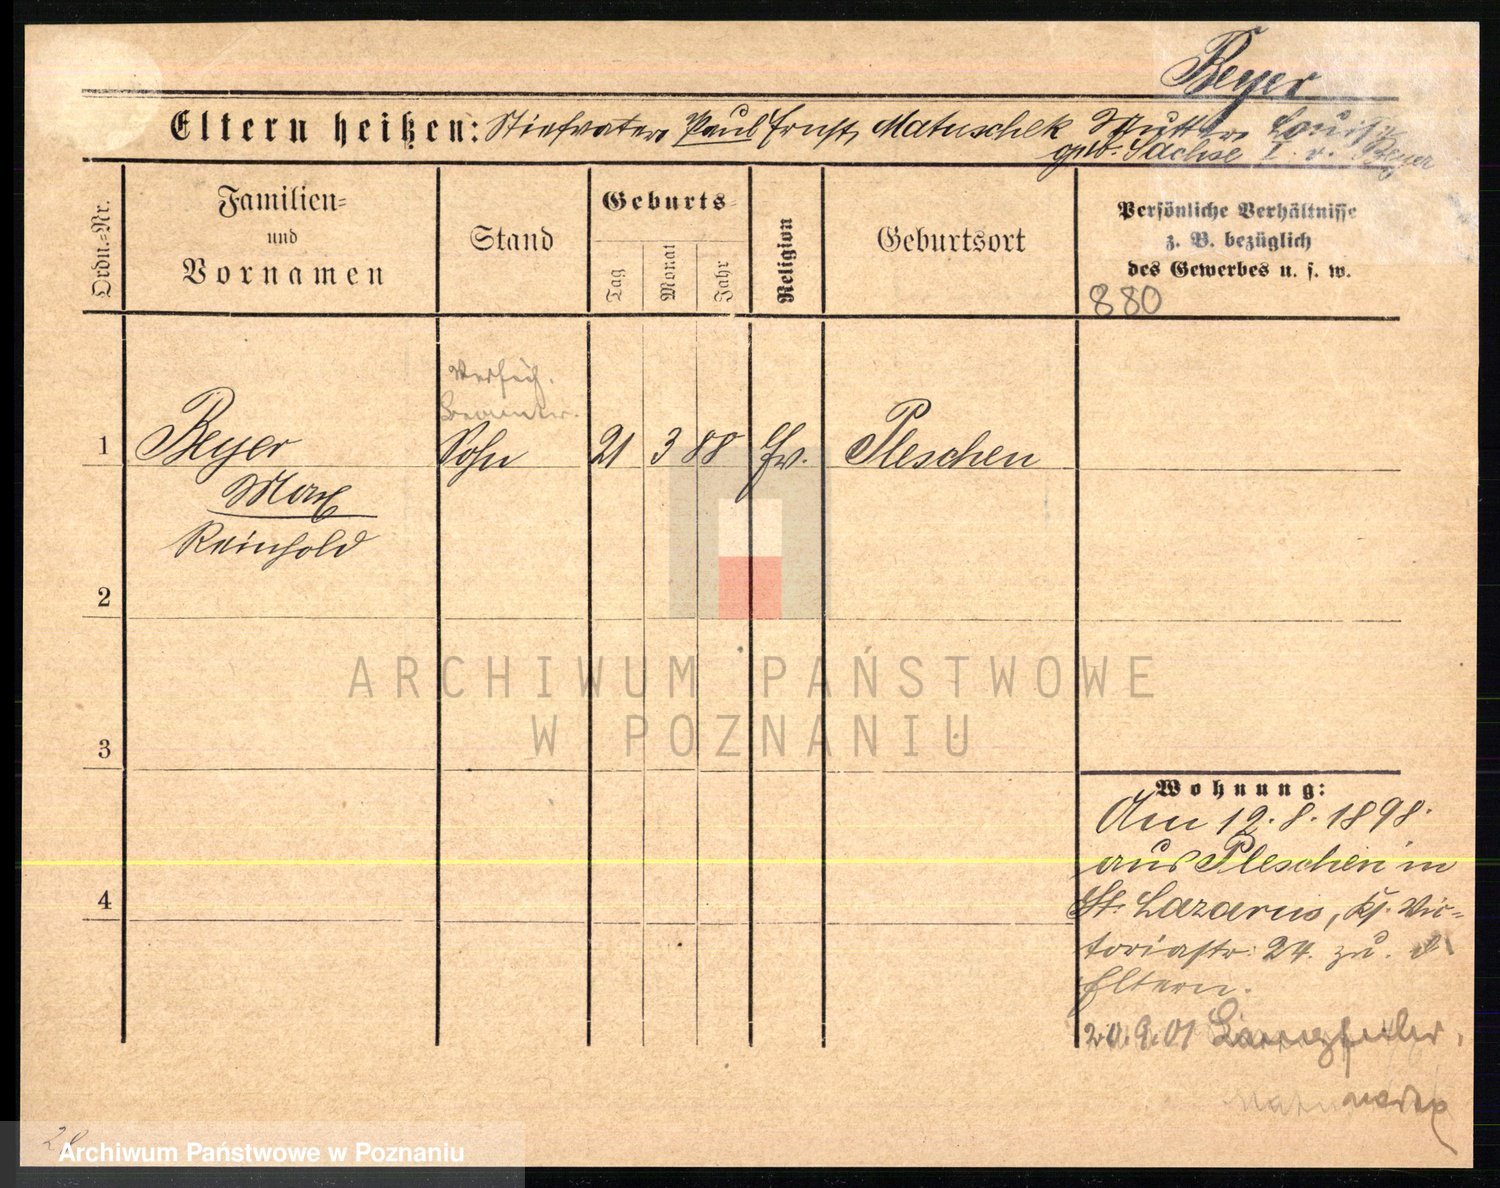 Beyer
Eltern heißen: Stiefvater Paul Ernst Matuschek Mutter Louise
geb. Sachse Beyer
Ordn.-Nr.
Familien-
und
Vornamen
Stand
Geburts-
Tag
Monat
Jahr
Religion
Geburtsort
Persönliche Verhältnisse
z. B. bezüglich
des Gewerbes u. s. w.
880
1 Beyer Sohn 21 3 88 Ev. Pleschen
Max
Reinhold
2
3
4
ARCHIWUM PAŃSTWOWE
W POZNANIU
Wohnung:
Am 12.8.1898.
aus Pleschen in
St. Lazarus, Kl. Vic-
toriastr. 24. zu. d.
Eltern.
20.9.01
Archiwum Państwowe w Poznaniu